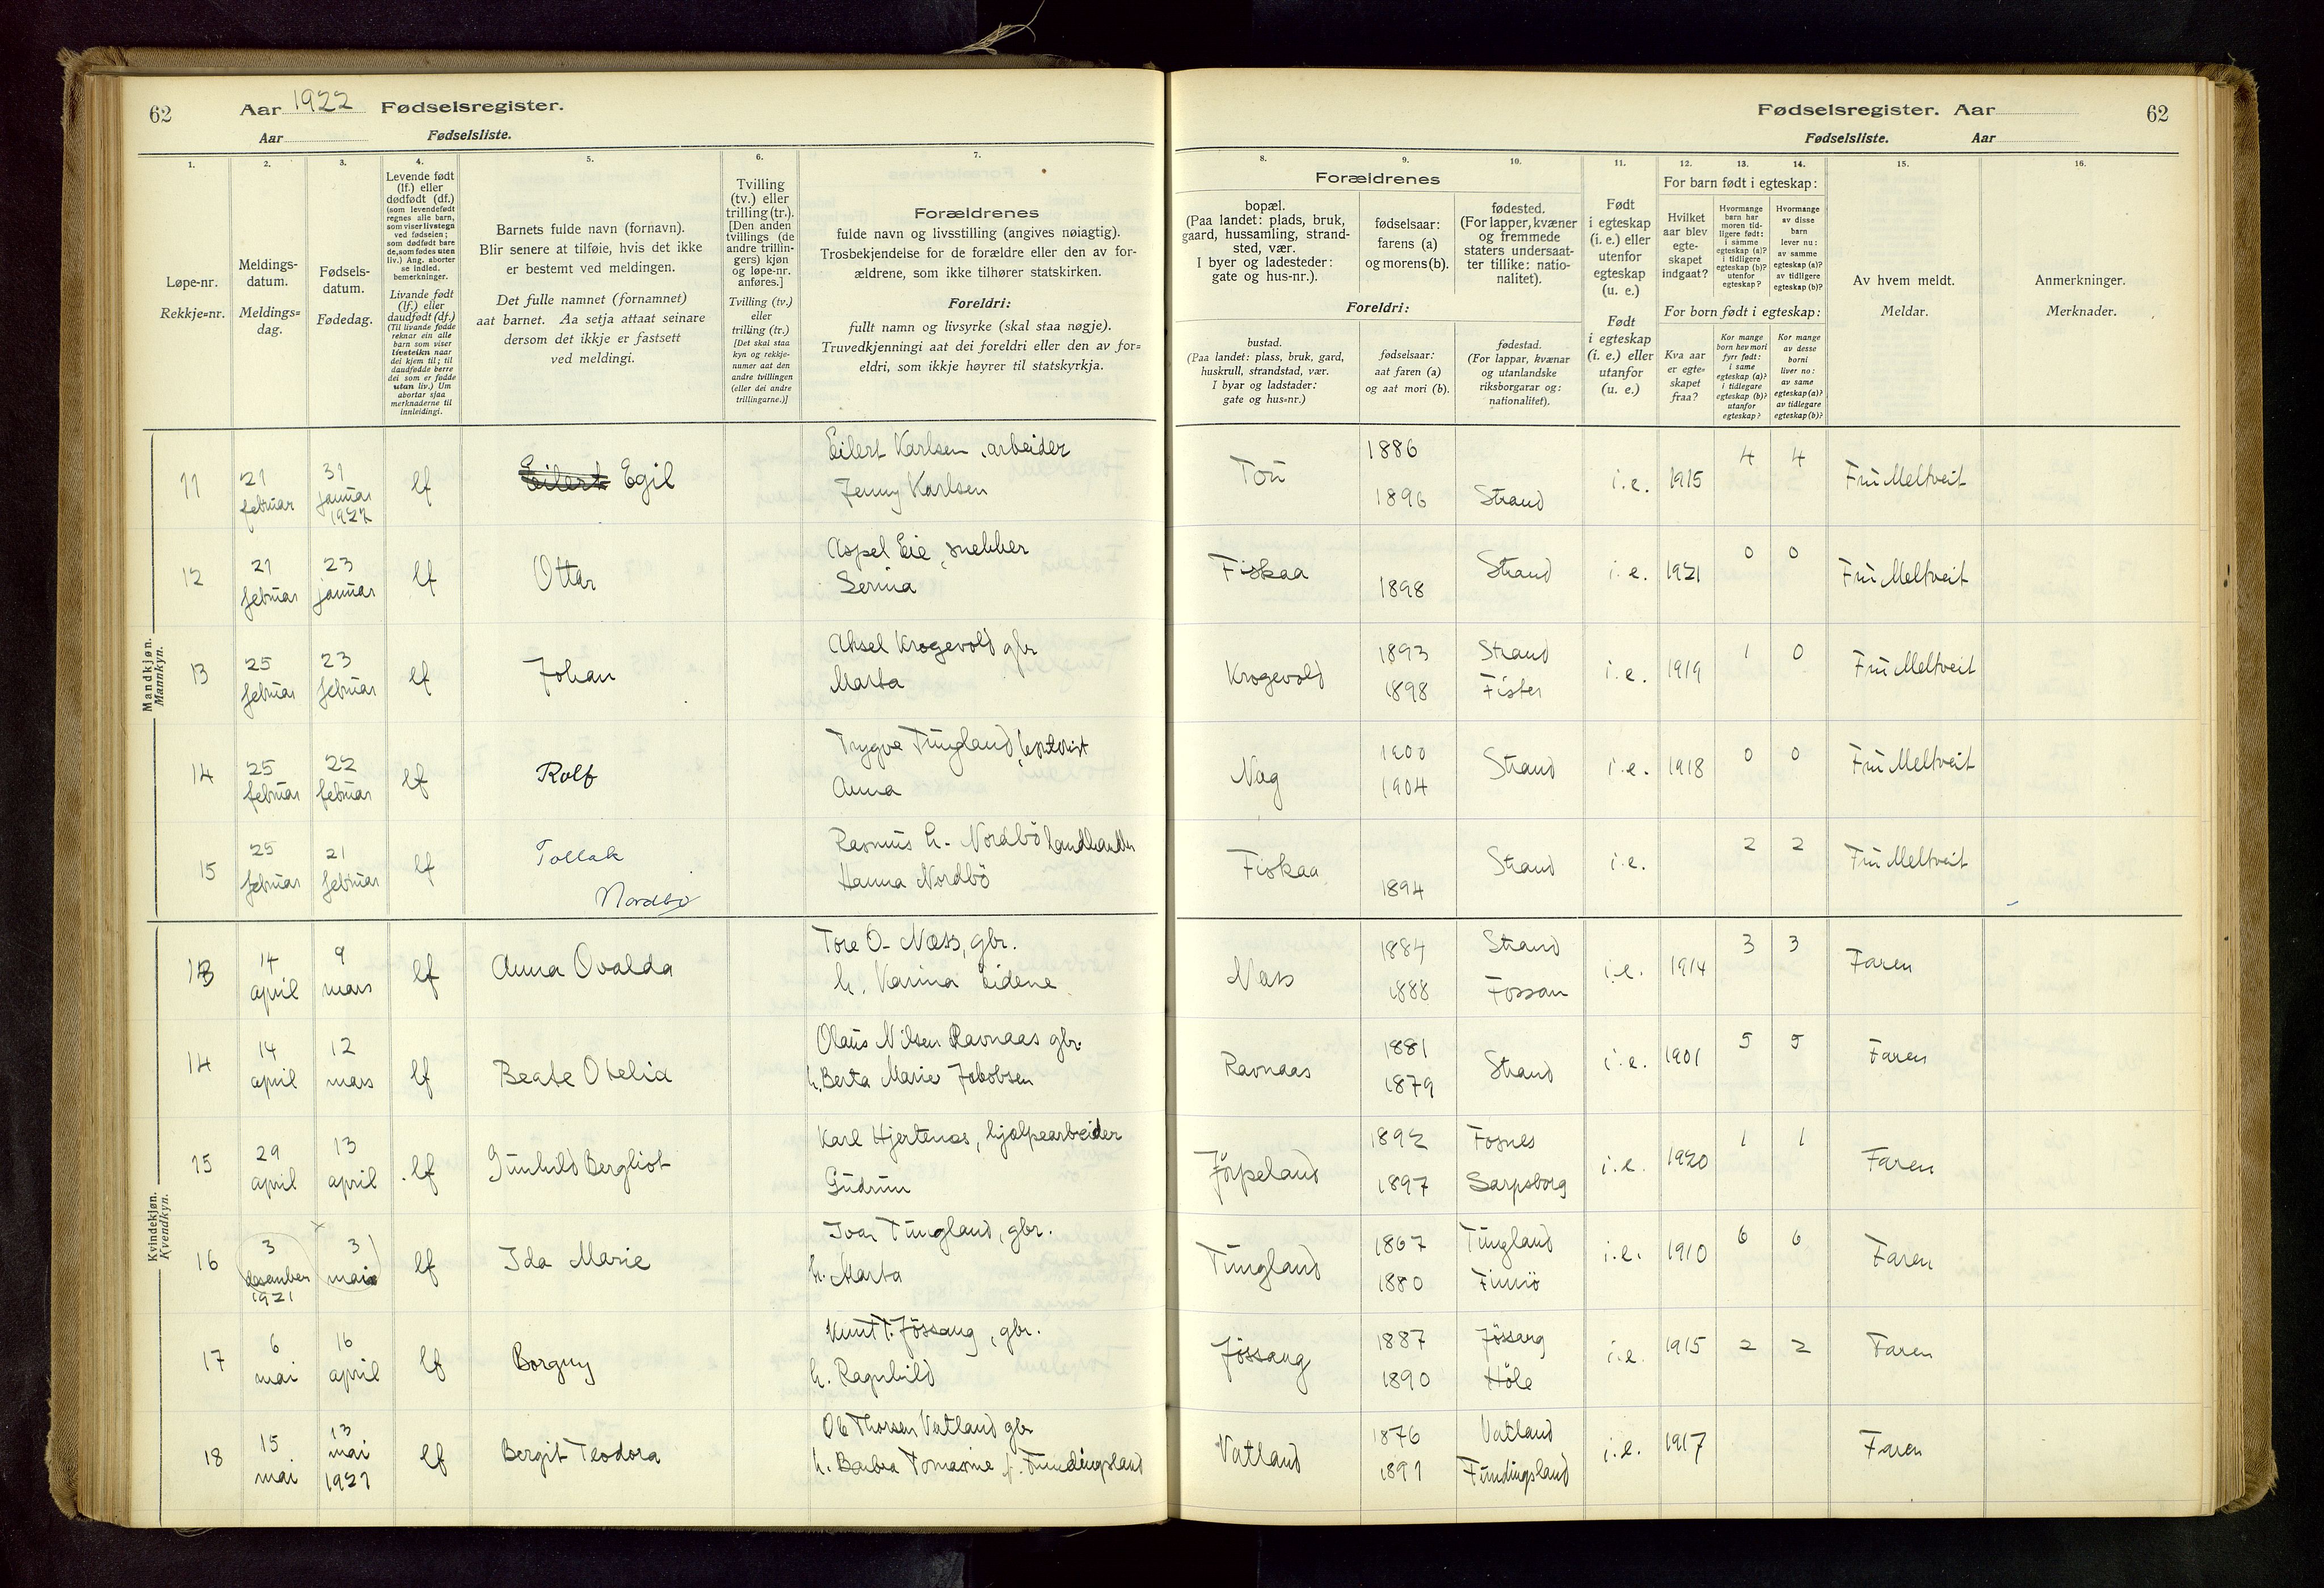 62 Aar 1922 Fødselsregister.
Aar Fødselsliste.
Fødselsregister. Aar 62
Fødselsliste. Aar
1. 2. 3. 4. 5. 6. 7.
Løpe-nr.
Rekkje=nr.
Meldings-
datum.
Meldings=
dag.
Fødsels-
datum.
Fødedag.
Levende født
(lf.) eller
dødfødt (df.)
(som levendefødt
regnes alle barn,
som viser livstegn
ved fødselen;
som dødfødt bare
de, som fødes uten
liv.) Ang. aborter
se indled.
bemerkninger.
Livande født
(lf.) eller
daudfødt (df.)
(Til livande fødde
reknar ein alle
barn som viser
livsteikn naar
dei kjem til; til
daudfødde berre
dei som er fødde
utan liv.) Um
abortar sjaa
merknaderne til
innleidingi.
Barnets fulde navn (fornavn).
Blir senere at tilføie, hvis det ikke
er bestemt ved meldingen.
Det fulle namnet (fornamnet)
aat barnet. Aa setja attaat seinare
dersom det ikkje er fastsett
ved meldingi.
Tvilling
(tv.) eller
trilling (tr.).
[Den anden
tvillings (de
andre trillin-
gers) kjøn
og løpe-nr.
anføres.]
Tvilling (tv.)
eller
trilling (tr.)
[Det skal staa
kyn og rekkje-
numer aat den
andre tvillingen
(eller dei andre
trillingarne.)]
Forældrenes
fulde navn og livsstilling (angives nøiagtig).
Trosbekjendelse for de forældre eller den av for-
ældrene, som ikke tilhører statskirken.
Foreldri:
fullt namn og livsyrke (skal staa nøgje).
Truvedkjenningi aat dei foreldri eller den av for=
eldri, som ikkje høyrer til statskyrkja.
8. 9. 10. 11. 12. 13. 14. 15. 16.
Forældrenes
bopæl.
(Paa landet: plads, bruk,
gaard, hussamling, strand-
sted, vær.
I byer og ladesteder:
gate og hus-nr.).
fødselsaar:
farens (a)
og morens (b).
fødested.
(For lapper, kvæner
og fremmede
staters undersaat-
ter tillike: natio-
nalitet).
Foreldri:
bustad.
(Paa landet: plass, bruk, gard,
huskrull, strandstad, vær.
I byar og ladstader:
gate og hus=nr.)
fødselsaar:
aat faren (a)
og aat mori (b).
fødestad.
(For lappar, kvænar
og utanlandske
riksborgarar og:
nationalitet).
Født
i egteskap
(i. e.) eller
utenfor
egteskap
(u. e.)
Født
i egteskap
(i. e.) eller
utanfor
(u. e.)
For barn født i egteskap:
Hvilket
aar blev
egte-
skapet
indgaat?
Hvormange
barn har
moren tid-
ligere født:
i samme
egteskap (a)?
i tidligere
egteskap (b)?
utenfor
egteskap?
Hvormange
av disse
barn
lever nu:
av samme
egteskap (a)?
av tidligere
egteskap (b)?
For born født i egteskap:
Kva aar
er egte=
skapet
fraa?
Kor mange
born hev mori
fyrr født:
i same
egteskap (a)?
i tidlegare
egteskap (b)?
utanfor
egteskap?
Kor mange
av desse
borni
liver no:
av same
egteskap (a)?
av tidlegare
egteskap (b)?
Av hvem meldt.
Meldar.
Anmerkninger.
Merknader.
Mandkjøn.
Mannkyn.
11 21 februar 31 januar 1922 lf Eilert Egil Eilert Karlsen, arbeider
Jenny Karlsen
Tou 1886
1896 Strand i.e. 1915 4 4 Fru Meltveit
12 21 februar 23 januar lf Ottar Aspel Eie, snekker
Serina
Fiskaa 1898 Strand i.e. 1921 0 0 Fru Meltveit
13 25 februar 23 februar lf Johan Aksel Krogevold gbr
Marta
Krogevold 1893 Strand
1898 Fister i.e. 1919 1 0 Fru Meltveit
14 25 februar 22 februar lf Rolf Trygve Tungland, kontorist
Anna
Nag 1900
1904 Strand i.e. 1918 0 0 Fru Meltveit
15 25 februar 21 februar lf Tollak
Nordbø
Rasmus h. Nordbö landhandler
Hanna Nordbö
Fiskaa 1894 Strand i.e. 2 2 Fru Meltveit
Kvindekjøn.
Kvendkyn.
13 14 april 9 mars lf Anna Ovalda Tore O. Næss, gbr.
h. Karina Eidene
Næss 1884 Strand
1888 Fossan i.e. 1914 3 3 Faren
14 14 april 12 mars lf Beate Otelia Olaus Nilsen Ravnaas gbr.
h. Berta Marie Jakobsen
Ravnaas 1881
1879 Strand i.e. 1901 5 5 Faren
15 29 april 13 april lf Gunhild Bergliot Karl Hjertenæs, hjælpearbeider
Gudrun
Jörpeland 1892 Fosnes
1897 Sarpsborg i.e. 1920 1 1 Faren
16 3 desember 1921 3 mai lf Ida Marie Ivar Tungland, gbr.
h. Marta
Tungland 1867 Tungland
1880 Finnö i.e. 1910 6 6 Faren
17 6 mai 16 april lf Borgny Knut T. Jössang, gbr.
h. Ragnhild
Jössang 1887 Jössang
1890 Höle i.e. 1915 2 2 Faren
18 15 mai 13 mai 1922 lf Bergit Teodora Ole Thorsen Vatland gbr
h. Barbra Tomasine f. Fundingsland
Vatland 1876 Vatland
1891 Fundingsland i.e. 1917 Faren